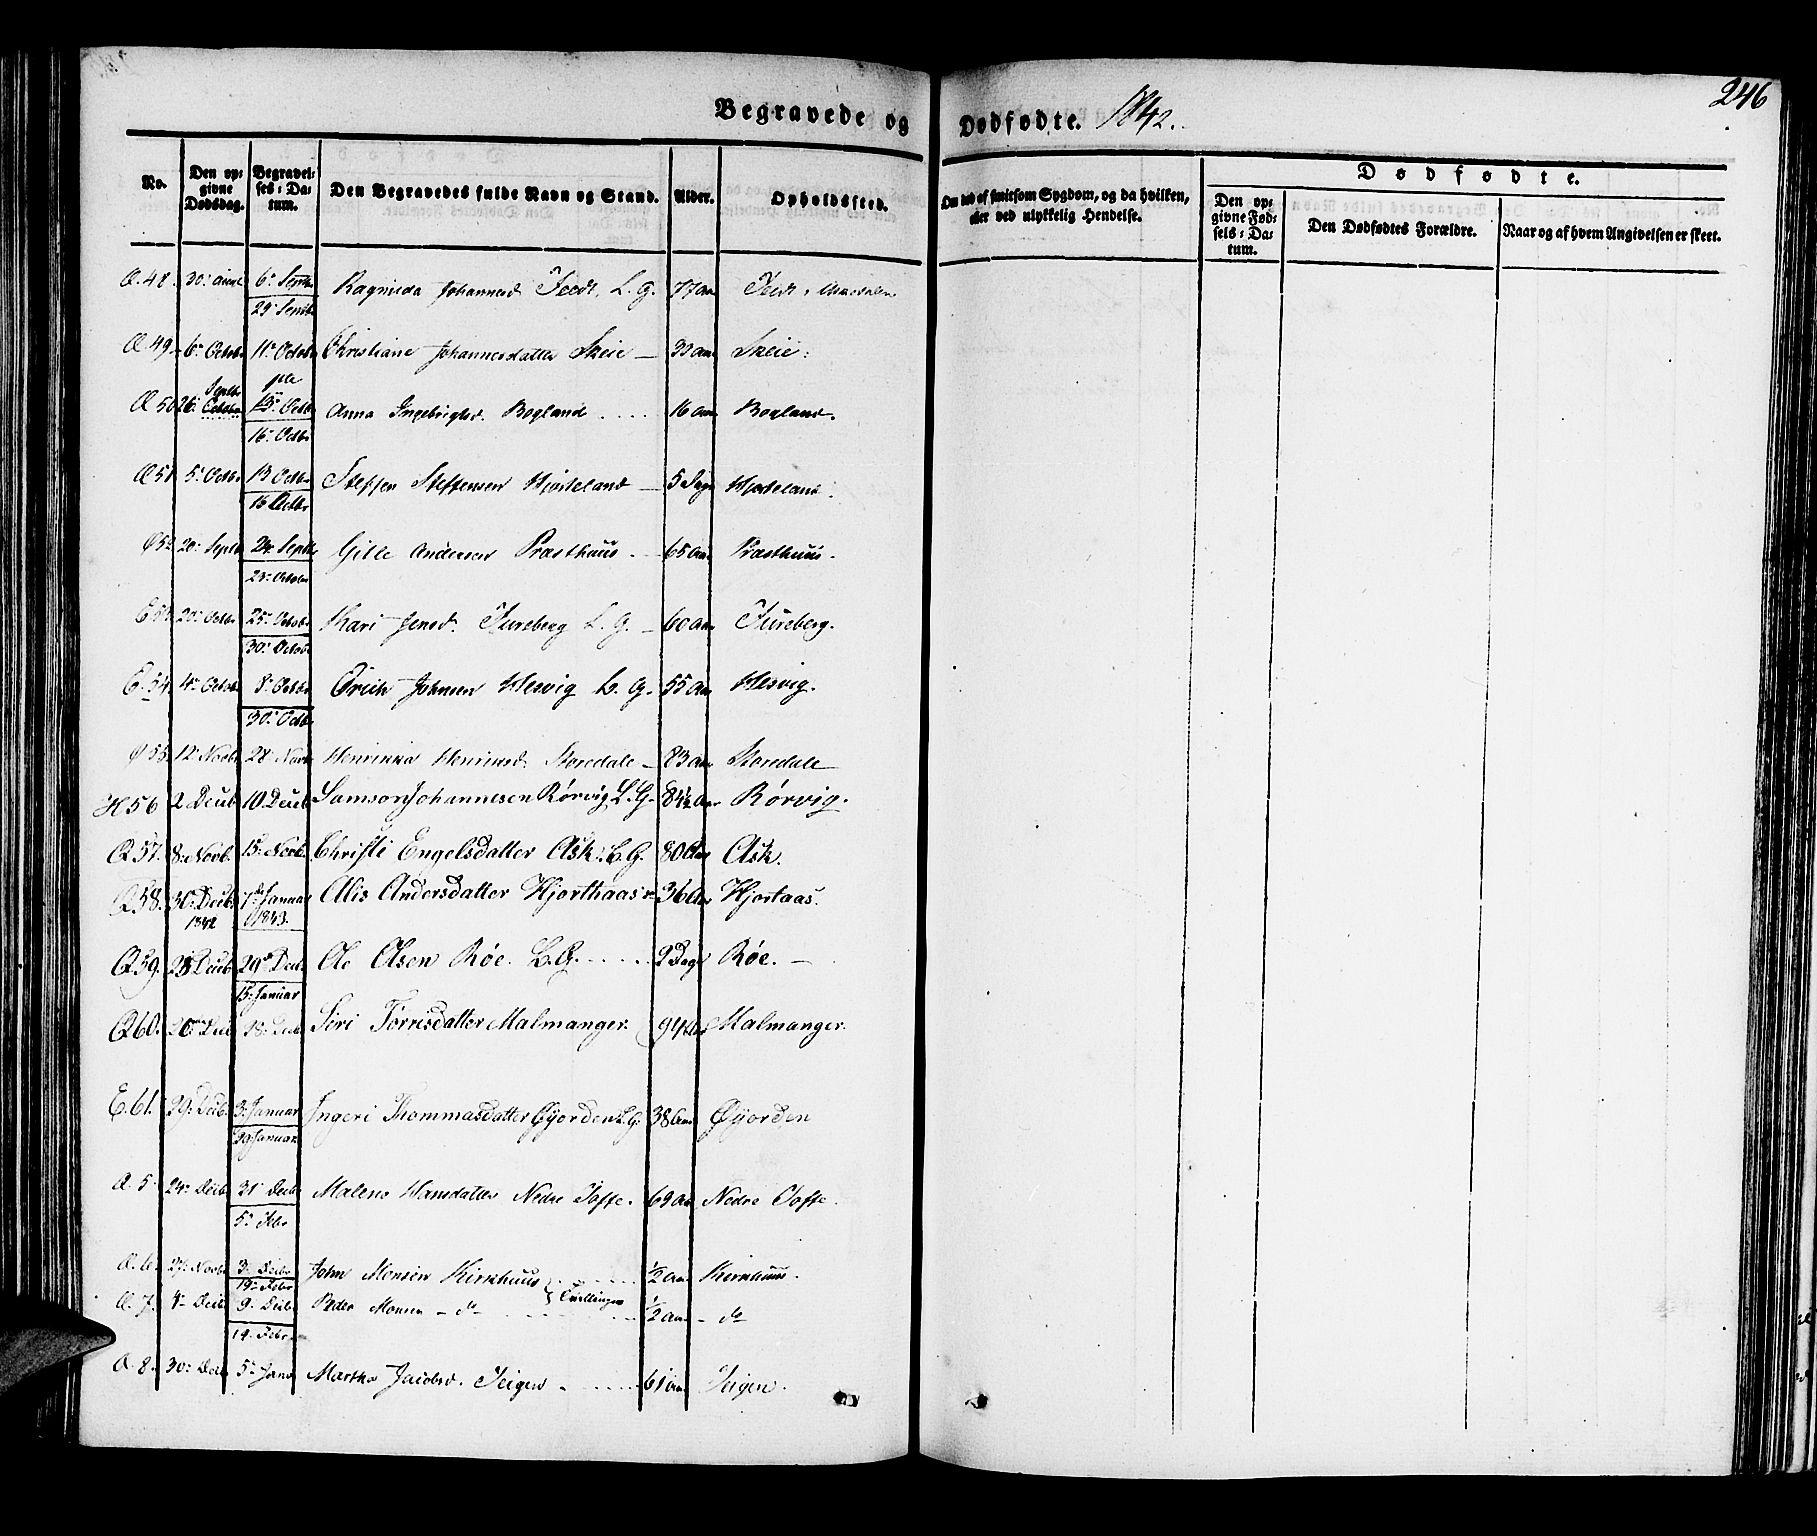 Begravede og Dødfødte. 1842.
246
No.
Den opgivne Dødsdag.
Begravelses-Datum.
Den Begravedes fulde Navn og Stand.
Alder.
Opholdssted.
Om død af smitsom Sygdom, og da hvilken, eller ved ulykkelig Hendelse.
Dødfødte.
Den opgivne Fødsels-Datum.
Den Dødfødtes Forældre.
Naar og af hvem Angivelsen er skeet.
48. 30. 6. Septbr 29. Septbr Johannesd. Tvedt, L. G. 77 Aar Tvedt,
49 6. Octobr 11. Octobr Christiane Johannesdatter Skeie 33 Aar Skeie.
50 26. Septbr 13. Octbr 16. Octbr Anna Ingebrigtsd. Bogland 16 Aar Bogland.
51 5. Octbr 13 Octbr 16 Octbr Steffen Steffensen Hjorteland 5 Dage Hjorteland.
52 20. Septbr 24. Septbr 23. Octobr Gille Andersen Præsthuus 65 Aar Præsthuus.
53 20. Octbr 25. Octobr 30. Octobr Kari Jensd. Tureberg L. G. 60 Aar Tureberg.
E. 54 4. Octobr 8. Octobr 30. Octbr Erich Johnsen Hesvig L. G. 55 Aar Hesvig.
Ø 55 12. Novbr 28. Novbr Henrikka Henriksd. Storedale 83 Aar Storedale
H 56 2 Decbr 10 Decbr Samson Johannesen Rørvig L. G. 84½ Aar Rørvig.
57. 8. Novb. 15. Novb. Christi Engelsdatter Ask L. G. 80 Aar Ask.
58. 30. Decb. 1842 7de Januar 1843. Alis Andersdatter Hjorthaas 36 Aar Hjortaas.
59. 28 Decb 29de Decb. 15. Januar Ole Olsen Røe. L. G. 2 Dage Røe.
60. Decb Decb Siri Torrisdatter Malmanger. 94 Aar Malmanger.
E. 61. 29. Decb. 3. Januar 29 Januar Ingeri Thommasdatter Øijorden L. G. 38 Aar Øijorden
5. 24. Decbr 31. Decbr 5. Febr Malene Hansdatter Nedre Tofte. 69 Aar Nedre Tofte
6. 27. Novbr 3. Decbr 19. Febr John Monsen Kirkhuus ½ Aar Kirkhuus.
7. 4. Decbr 9. Decbr 14. Febr Peder Monsen — do — Tvillinger ½ Aar do
8. 30. Decbr 5. Janr Martha Jacobsd. Teigen 61 Aar Teigen.